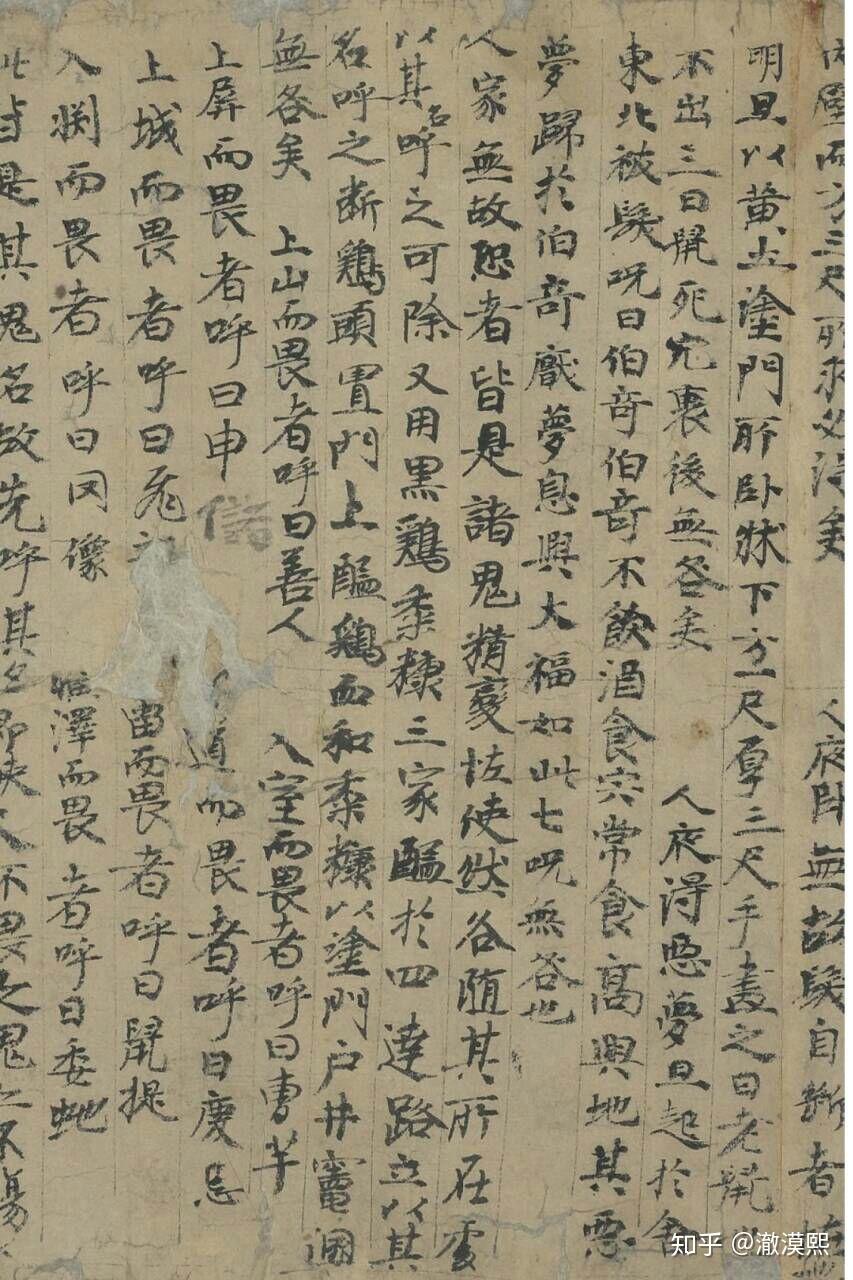 内屋而方三尺所求必得矣　人夜卧無故髮自断者
明旦以黄土塗門所卧牀下方一尺厚三尺手畫之曰老鼠
不出三日鼠死穴裏後無咎矣　人夜得惡夢旦起於舍
東北被髮呪曰伯奇伯奇不飲酒食宍常食高興地其惡
夢歸於伯奇厭夢息興大福如此七呪無咎也
人家無故恐者皆是諸鬼精變怪使然各随其所在處
以其名呼之可除又用黑鷄黍糠三家醢於四達路立以其
名呼之断鷄頭置門上醢鷄而和黍糠以塗門户井竈溷
無咎矣　上山而畏者呼曰善人　入室而畏者呼曰曹芊
上屏而畏者呼曰申　道而畏者呼曰慶忌
上城而畏者呼曰飛　畏者呼曰鼠提
入渕而畏者呼曰罔像　澤而畏者呼曰委虵
此皆是其鬼名故先呼其名即使人不畏之鬼亦不傷
知乎 @澈漠熙